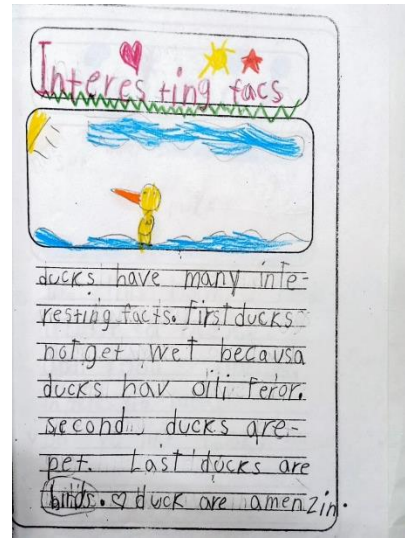 Interesting facs
ducks have many inte-
resting facts. first ducks
not get wet becausa
ducks hav oili feror.
second ducks are
pet. Last ducks are
birds. ♡ duck are amenzin.